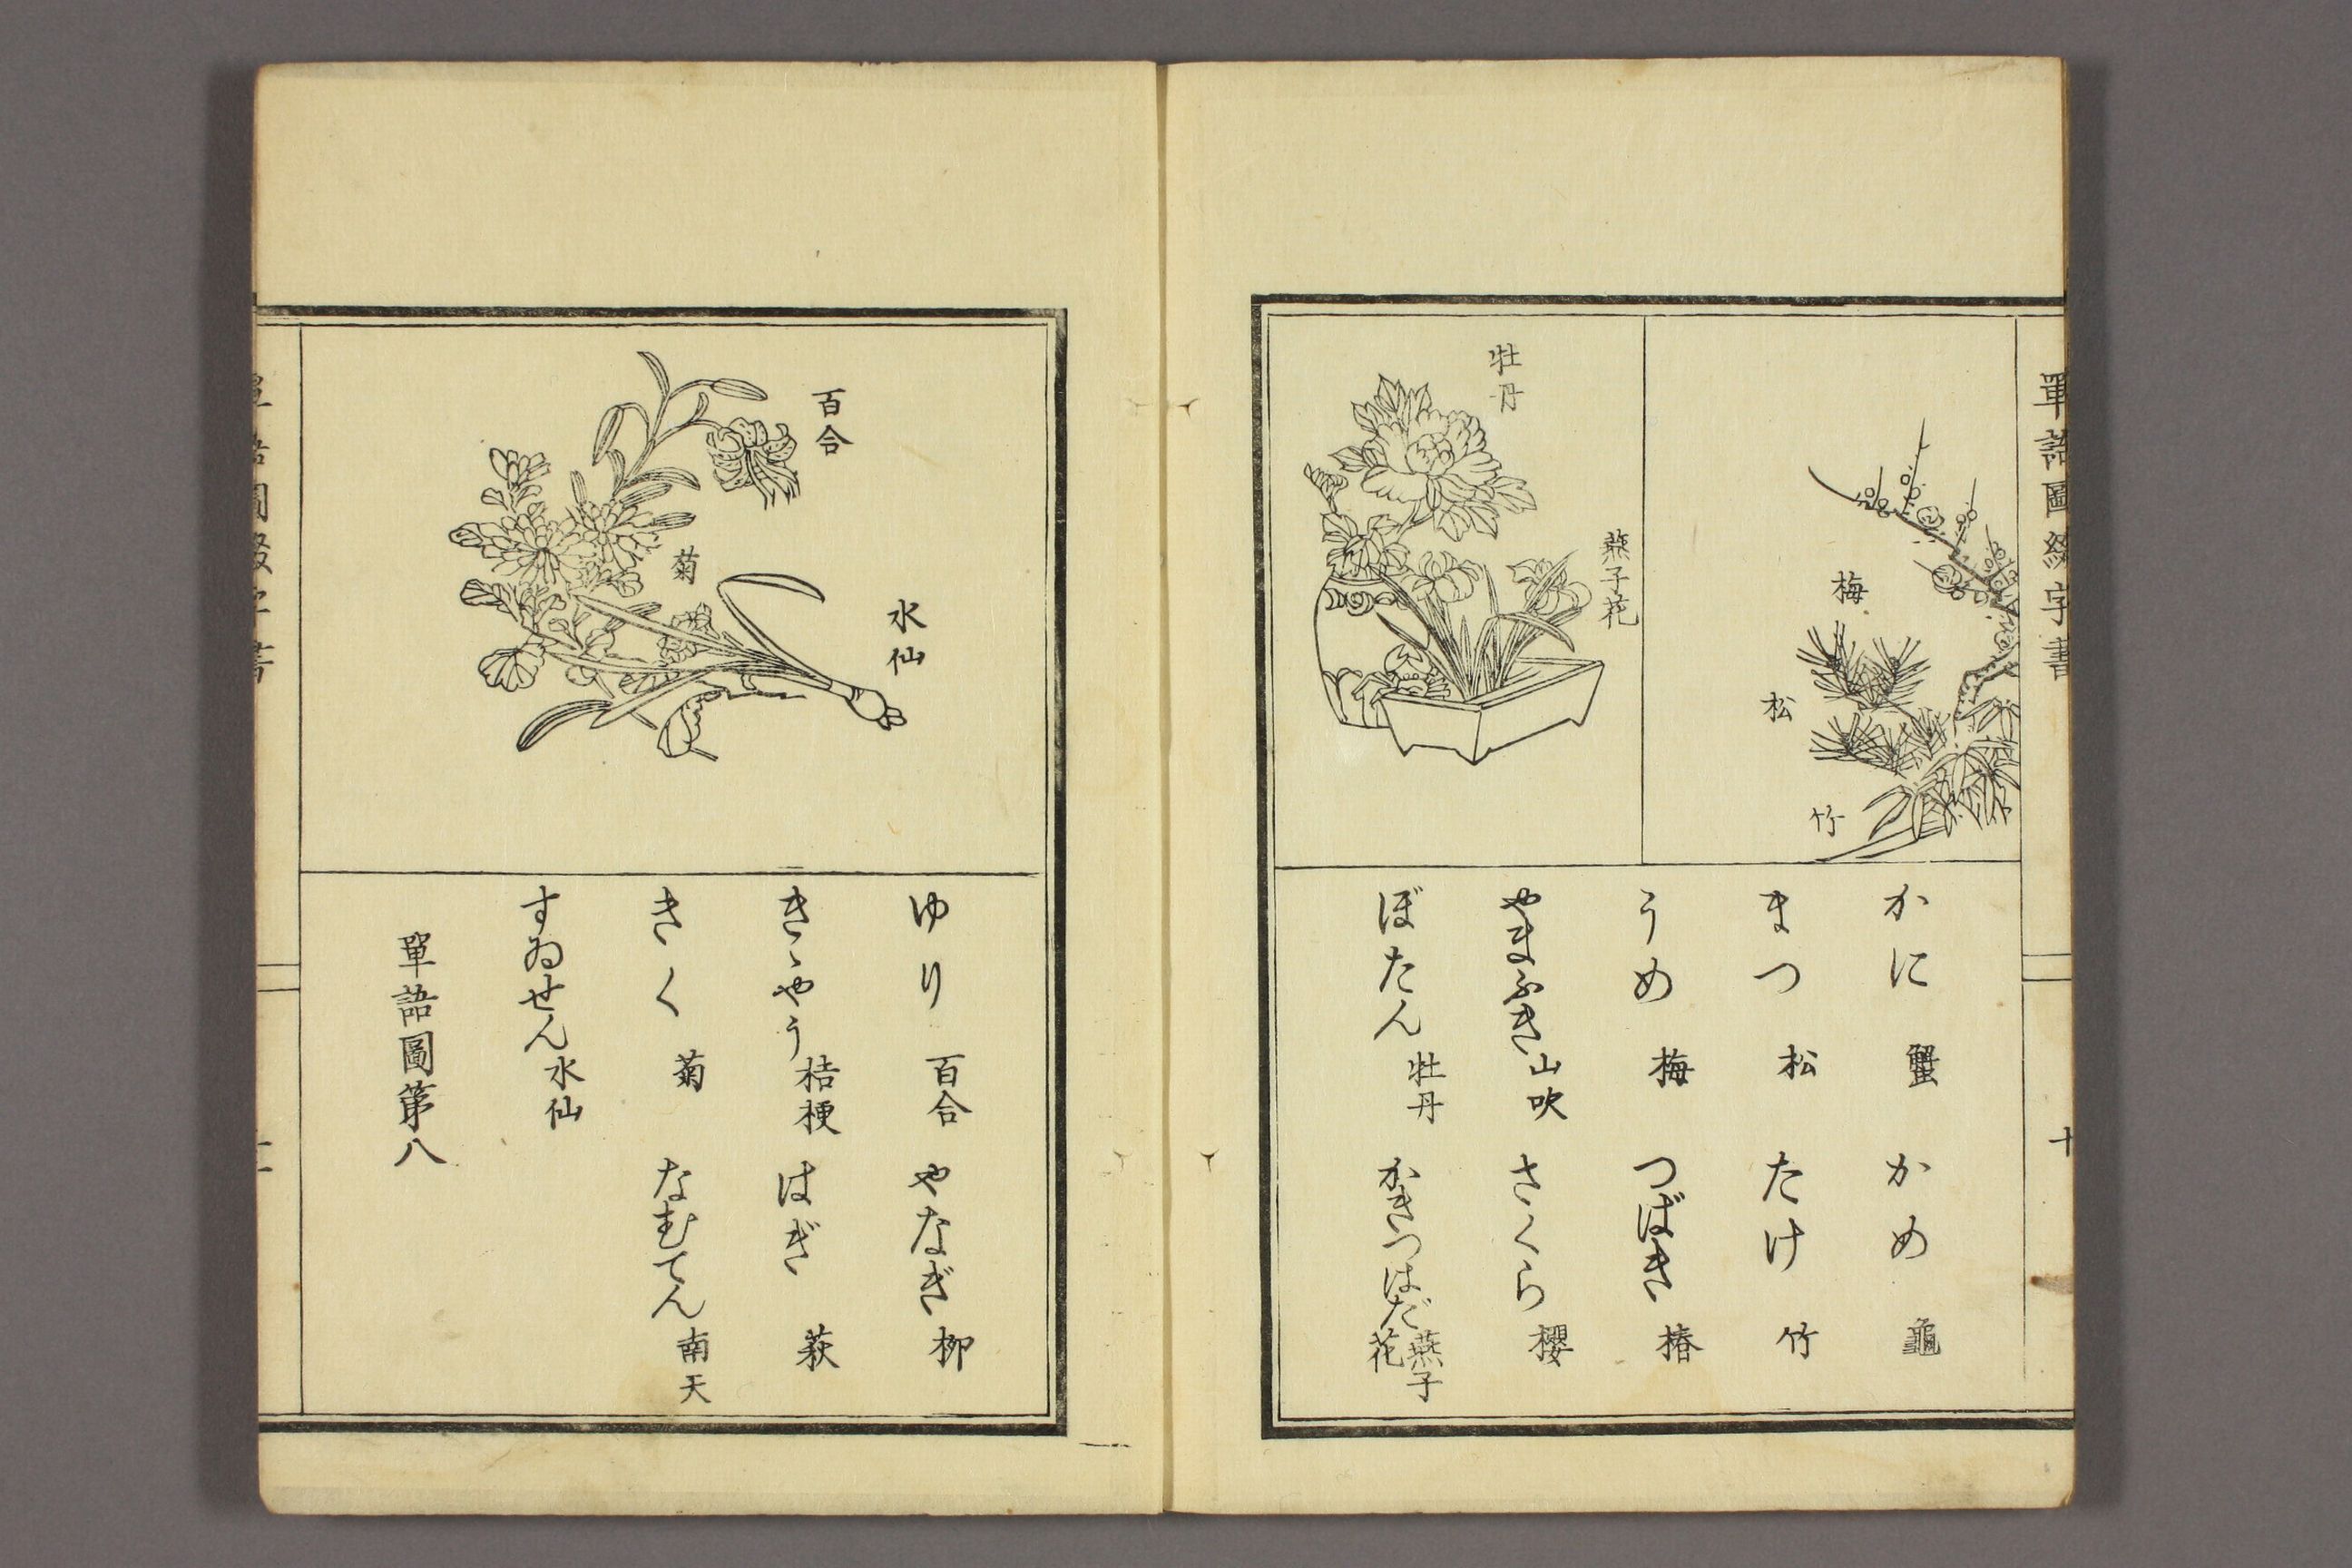 單語圖綴字書
十
梅
松
竹
燕子花
牡丹
かに 蟹 かめ 龜
まつ 松 たけ 竹
うめ 梅 つばき 椿
やまふき 山吹 さくら 櫻
ぼたん 牡丹 かきつはだ 燕子花
百合
水仙
菊
ゆり 百合 やなぎ 柳
きゝやう 桔梗 はぎ 萩
きく 菊 なむてん 南天
すゐせん 水仙
單語圖第八